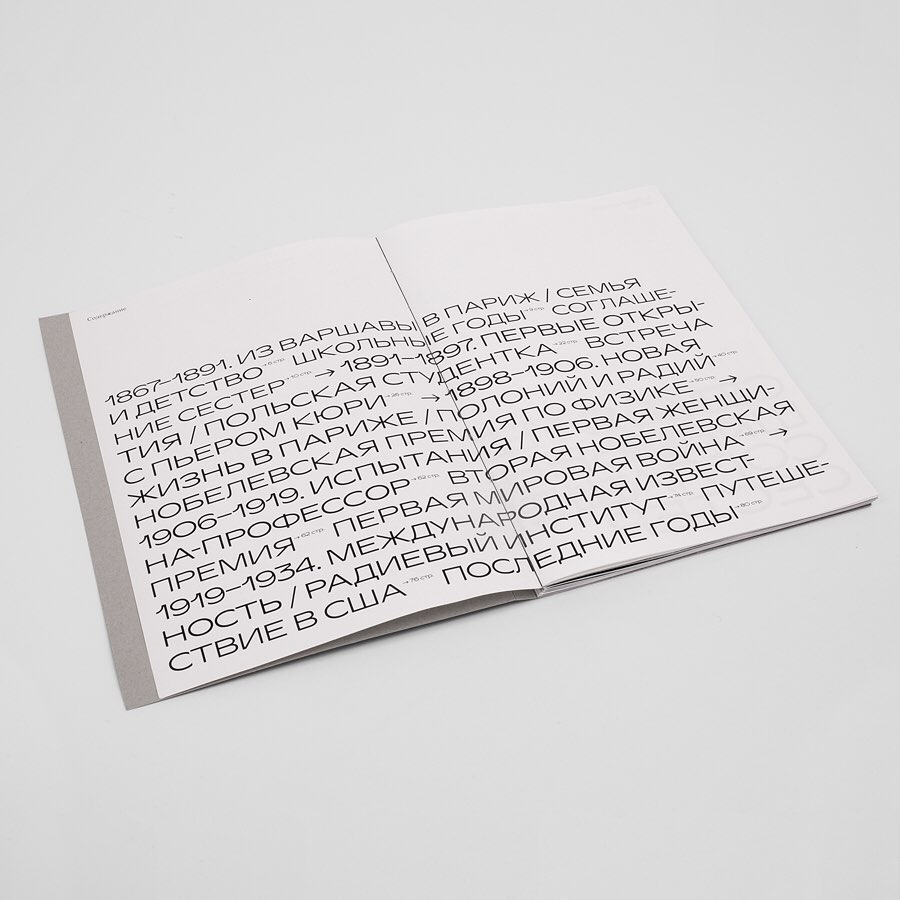 Содержание
1867–1891. ИЗ ВАРШАВЫ В ПАРИЖ / СЕМЬЯ
И ДЕТСТВО → 6 стр. ШКОЛЬНЫЕ ГОДЫ → 9 стр. СОГЛАШЕ-
НИЕ СЕСТЕР → 10 стр. → 1891–1897. ПЕРВЫЕ ОТКРЫ-
ТИЯ / ПОЛЬСКАЯ СТУДЕНТКА → 22 стр. ВСТРЕЧА
С ПЬЕРОМ КЮРИ → 26 стр. → 1898–1906. НОВАЯ
ЖИЗНЬ В ПАРИЖЕ / ПОЛОНИЙ И РАДИЙ → 40 стр.
НОБЕЛЕВСКАЯ ПРЕМИЯ ПО ФИЗИКЕ → 50 стр. →
1906–1919. ИСПЫТАНИЯ / ПЕРВАЯ ЖЕНЩИ-
НА-ПРОФЕССОР → 62 стр. ВТОРАЯ НОБЕЛЕВСКАЯ
ПРЕМИЯ → 62 стр. ПЕРВАЯ МИРОВАЯ ВОЙНА → 69 стр. →
1919–1934. МЕЖДУНАРОДНАЯ ИЗВЕСТ-
НОСТЬ / РАДИЕВЫЙ ИНСТИТУТ → 74 стр. ПУТЕШЕ-
СТВИЕ В США → 76 стр. ПОСЛЕДНИЕ ГОДЫ → 80 стр.